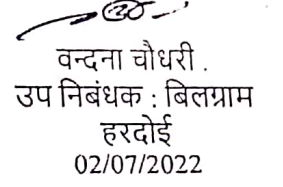 वन्दना चौधरी .
उप निबंधक : बिलग्राम
हरदोई
02/07/2022